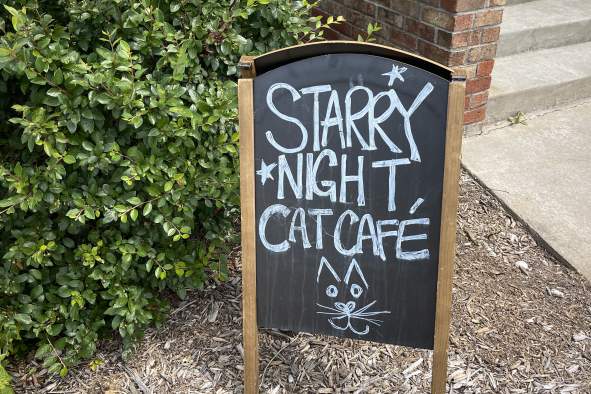 STARRY
NIGHT
CAT CAFÉ